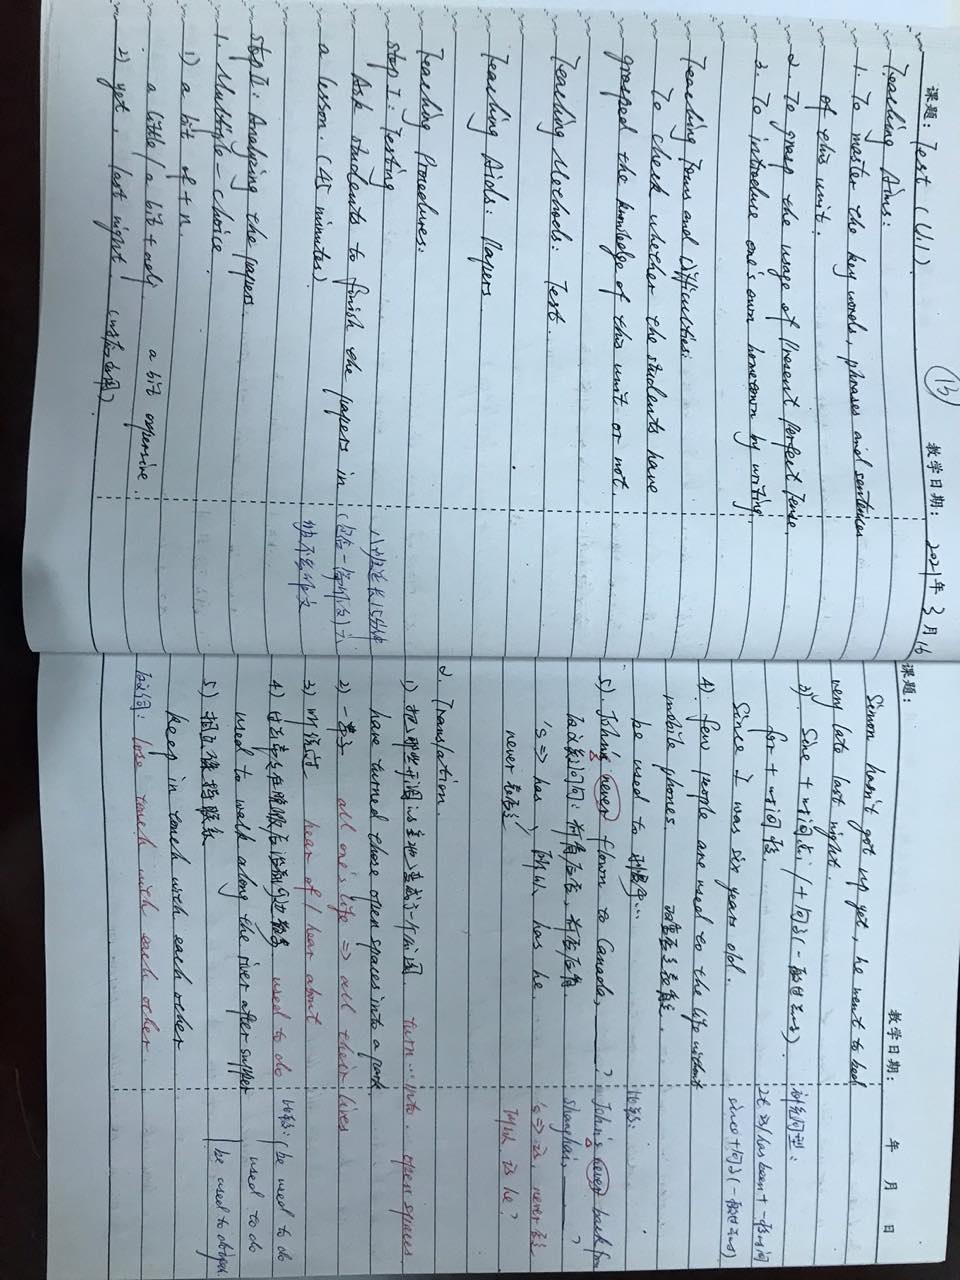 课题: Test (U.1)
⑬
教学日期: 2021年 3月 16
Teaching Aims:
1. To master the key words, phrases and sentences
of this unit.
2. To grasp the usage of Present Perfect Tense
3. To introduce one's own hometown by writing
Teaching Focus and Difficulties:
To check whether the students have
grasped the knowledge of this unit or not.
Teaching Methods: Test.
Teaching Aids: Papers
Teaching Procedures:
Step I: Testing
Ask students to finish the papers in
a lesson. (45 minutes)
Step II: Analyzing the papers.
1. Multiple-choice
1) a bit of + n
a little / a bit + adj. a bit expensive.
2) yet, last night
课题:
教学日期: 年 月 日
Simon hasn't got up yet, he went to bed
very late last night.
3) Sine + 时间点 / + 句子(一般过去时).
for + 时间段.
Since I was six years old.
4). few people are used to the life without
mobile phones.
be used to 习惯于...
5) John's never flown to Canada, ____?
反义疑问句: 前肯后否, 前否后肯
's => has, 所以 has he.
never 表否
比较:
John's never back from
Shanghai, ____?
's => is, never 否
所以 is he?
2. Translation.
1) 把那些开阔的空地变成了一个公园. turn... into. open spaces
have turned those open spaces into a park
2) 一辈子 all one's life => all their lives
3) 听说过 hear of / hear about
4) used to do
used to walk along the river after supper
比较: be used to do
used to do
be used to doing
5) 相互保持联系
keep in touch with each other
反义词: lose touch with each other